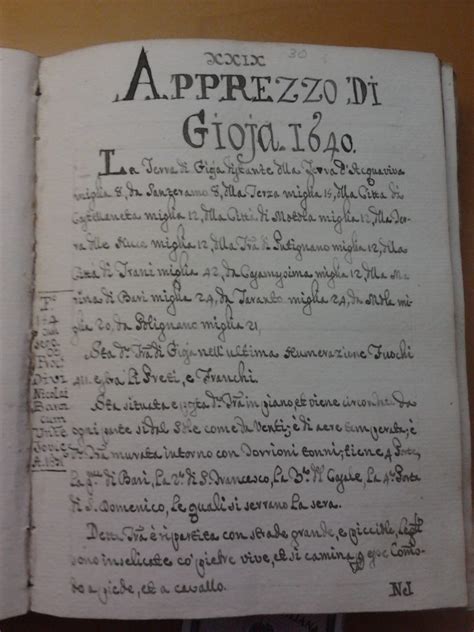 XXIX 30
APPREZZO DI
GIOJA. 1640.
La Terra di Gioja distante dalla Terra d'Acquaviva
miglia 8, da Santeramo 8, dalla Terza miglia 15, dalla Città di
Castellaneta miglia 12, dalla Città di Motola miglia 12, dalla Ter-
ra delle Noce miglia 12, dalla Trã di Putignano miglia 12, dalla
Città di Trani miglia 42, da miglia 12, dalla Ma-
rina di Bari miglia 24, da Taranto miglia 24, da Mola mi
glia 20, da Polignano miglia 21,
Sta dª. Trã di Gioja nell'ultima Numerazione Fuochi
Preti, e Franchi.
Sta situata e posta dª. Trã in piano, et viene circondata da
ogni parte sì dal Sole come da Venti, è di aere temperato, è
dª. Trã murata intorno con Torrioni tonni, tiene 4 Porte,
La pª. di Bari, La 2ª. di S. Francesco, La 3ª. del Casale, La 4ª. Porta
di S. Domenico, Le quali si serrano La sera.
Detta Trã è ripartita con strade grande, e piccole,
sono inselicate co' pietre vive, et si camina Como-
do a piede, et a cavallo.
Nel
Nicolai
Baron
cum